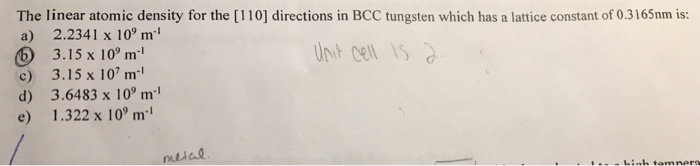 The linear atomic density for the [110] directions in BCC tungsten which has a lattice constant of 0.3165nm is:
a) 2.2341 x 10⁹ m⁻¹
b) 3.15 x 10⁹ m⁻¹
Unit cell is 2.
c) 3.15 x 10⁷ m⁻¹
d) 3.6483 x 10⁹ m⁻¹
e) 1.322 x 10⁹ m⁻¹
metal.